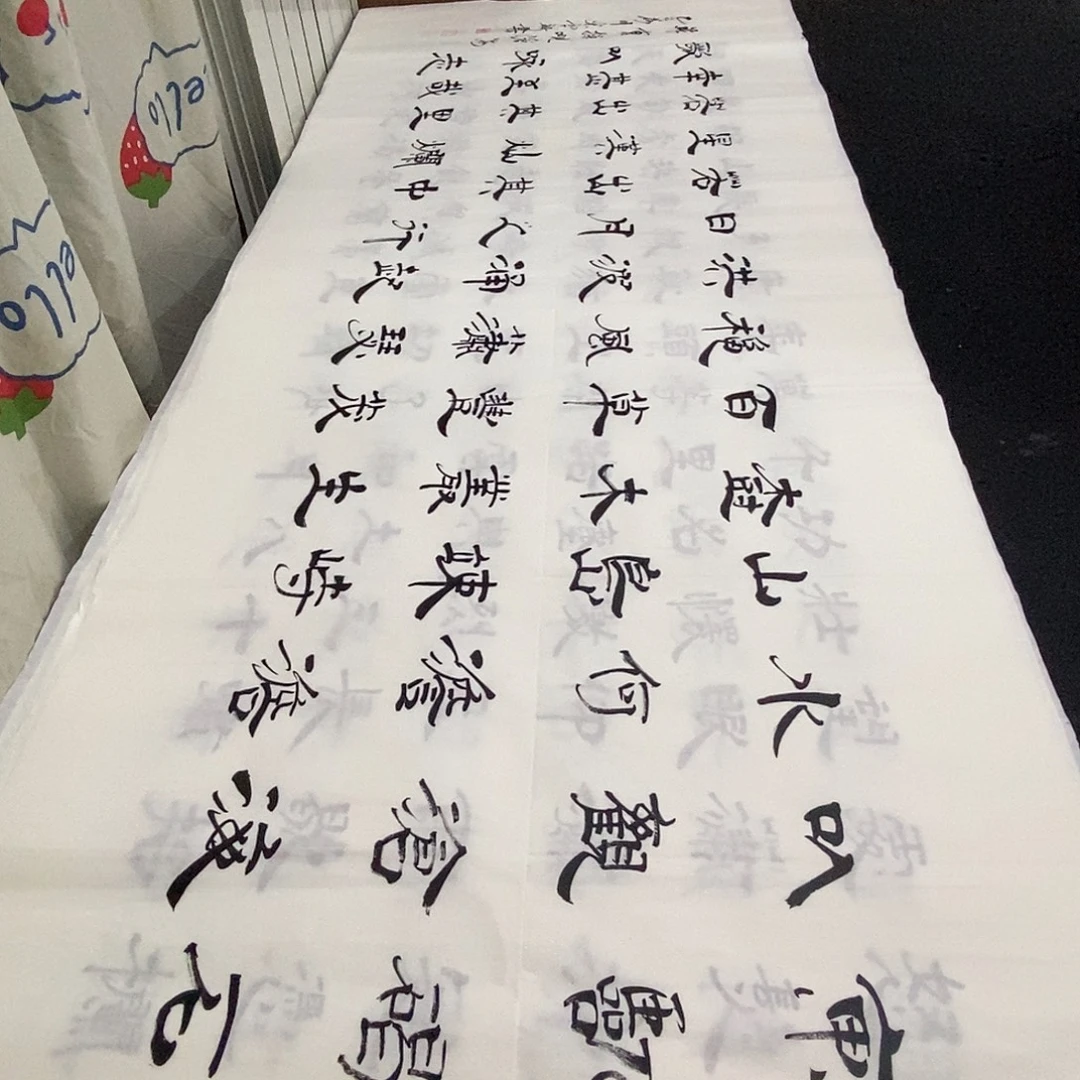 東臨碣石
以觀滄海
水何澹澹
山島竦峙
樹木叢生
百草豐茂
秋風蕭瑟
洪波涌起
日月之行
若出其中
星漢燦爛
若出其里
幸甚至哉
歌以詠志